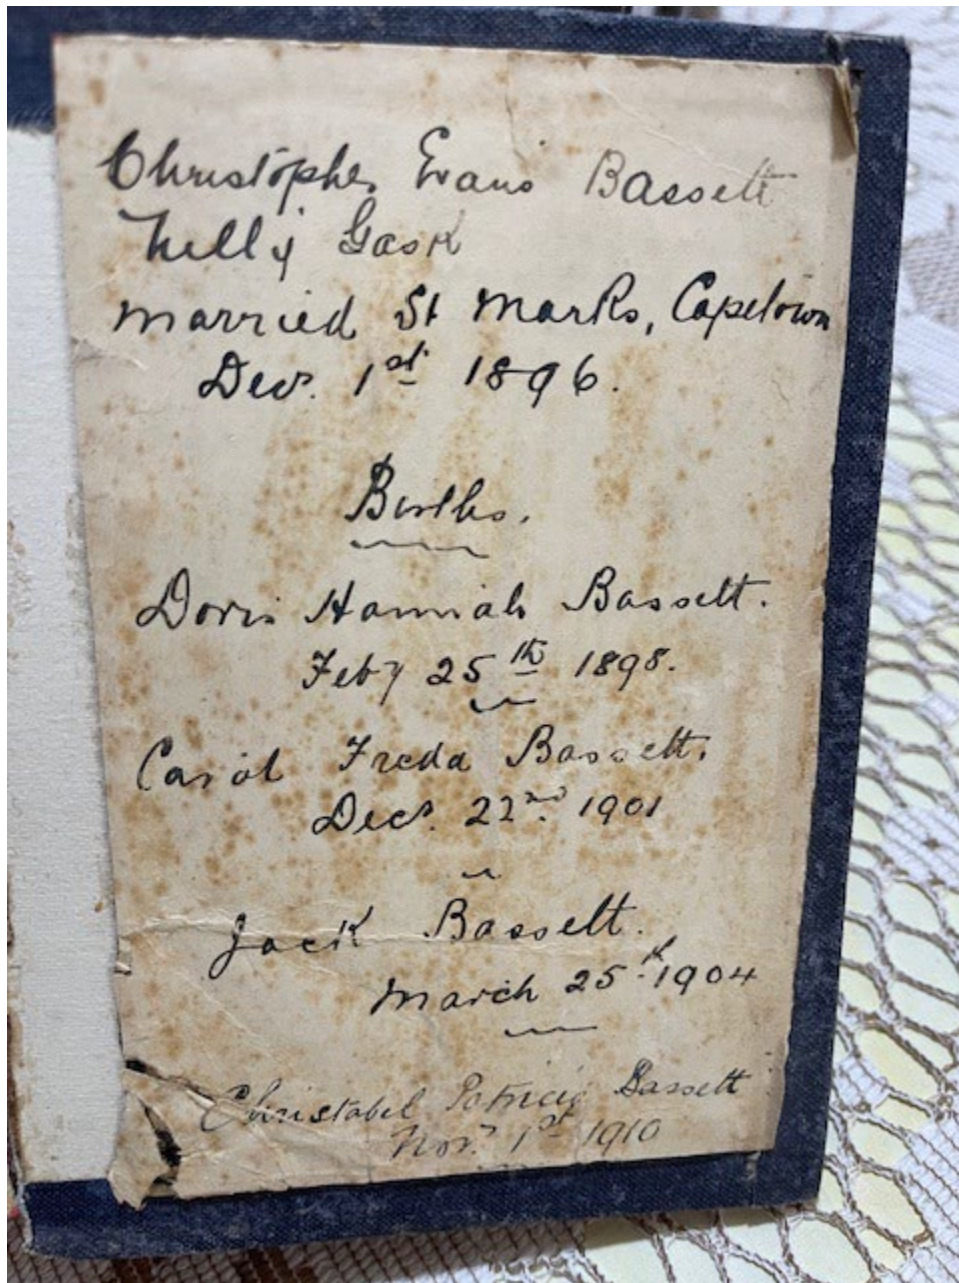 Christopher Evans Bassett
Nelly Gask
Married St Marks, Capetown
Decr. 1st 1896.
Births.
Doris Hannah Bassett.
Feby 25th 1898.
Carol Freda Bassett.
Decr. 22nd 1901
Jack Bassett.
March 25th 1904
Christabel Patricia Bassett
Novr. 1st 1910